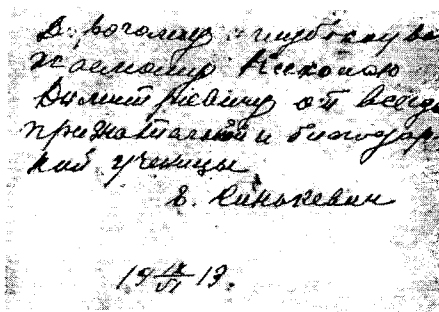 Дорогому глубокоува
жаемому Николаю
Димитриевичу от всегда
признательной и благодар
ной ученицы
19 13.